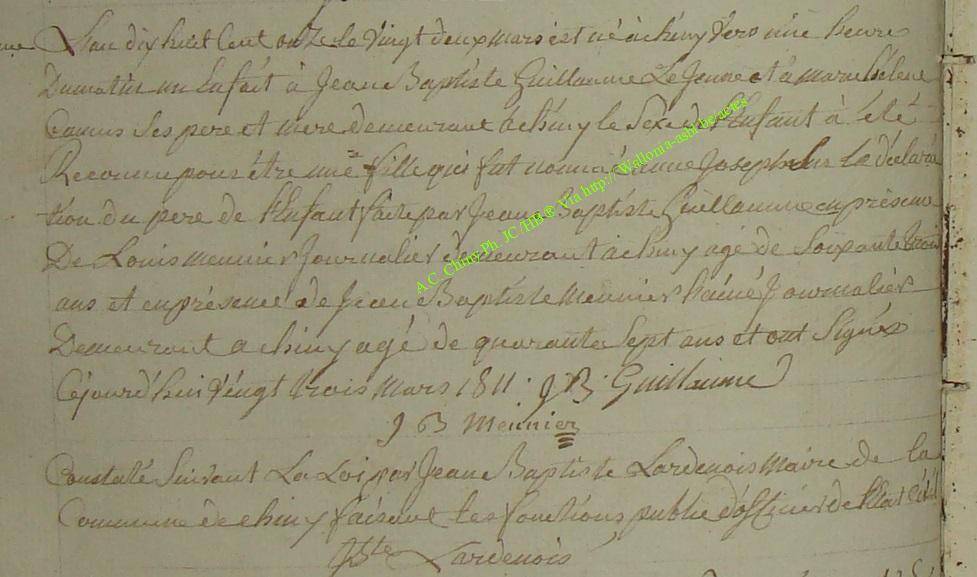 L'an dix huit Cent onze le Vingt deux mars est né à chiny Vers une heure
Dumatin un Enfant à Jean Baptiste Guillaume Le Jeune et à Marie hélene
Camus Ses pere et mere demeurant à chiny le Sexe de l'Enfant à été
Reconnu pour être une fille qui fut nommé anne Joseph Sur la déclara
tion du pere de l'Enfant faite par Jean Baptiste Guillaume en présence
De Louis meunier Journalier demeurant à chiny agé de Soixante trois
ans et en présence de Jean Baptiste Meunier L'ainé Journalier
Demeurant a chiny agé de quarante Sept ans et ont Signés
Cejourd'hui Vingt trois mars 1811 : J B : Guillaume
J B Meunier
Constaté Suivant La Loi par Jean Baptiste Lardenois Maire de la
Commune de chiny faisant les fonctions public d'officier de l'Etat Civil
JBte Lardenois
A.C. Chiny Ph. JC /HB ® Via http://Wallonia-asbl.be/actes